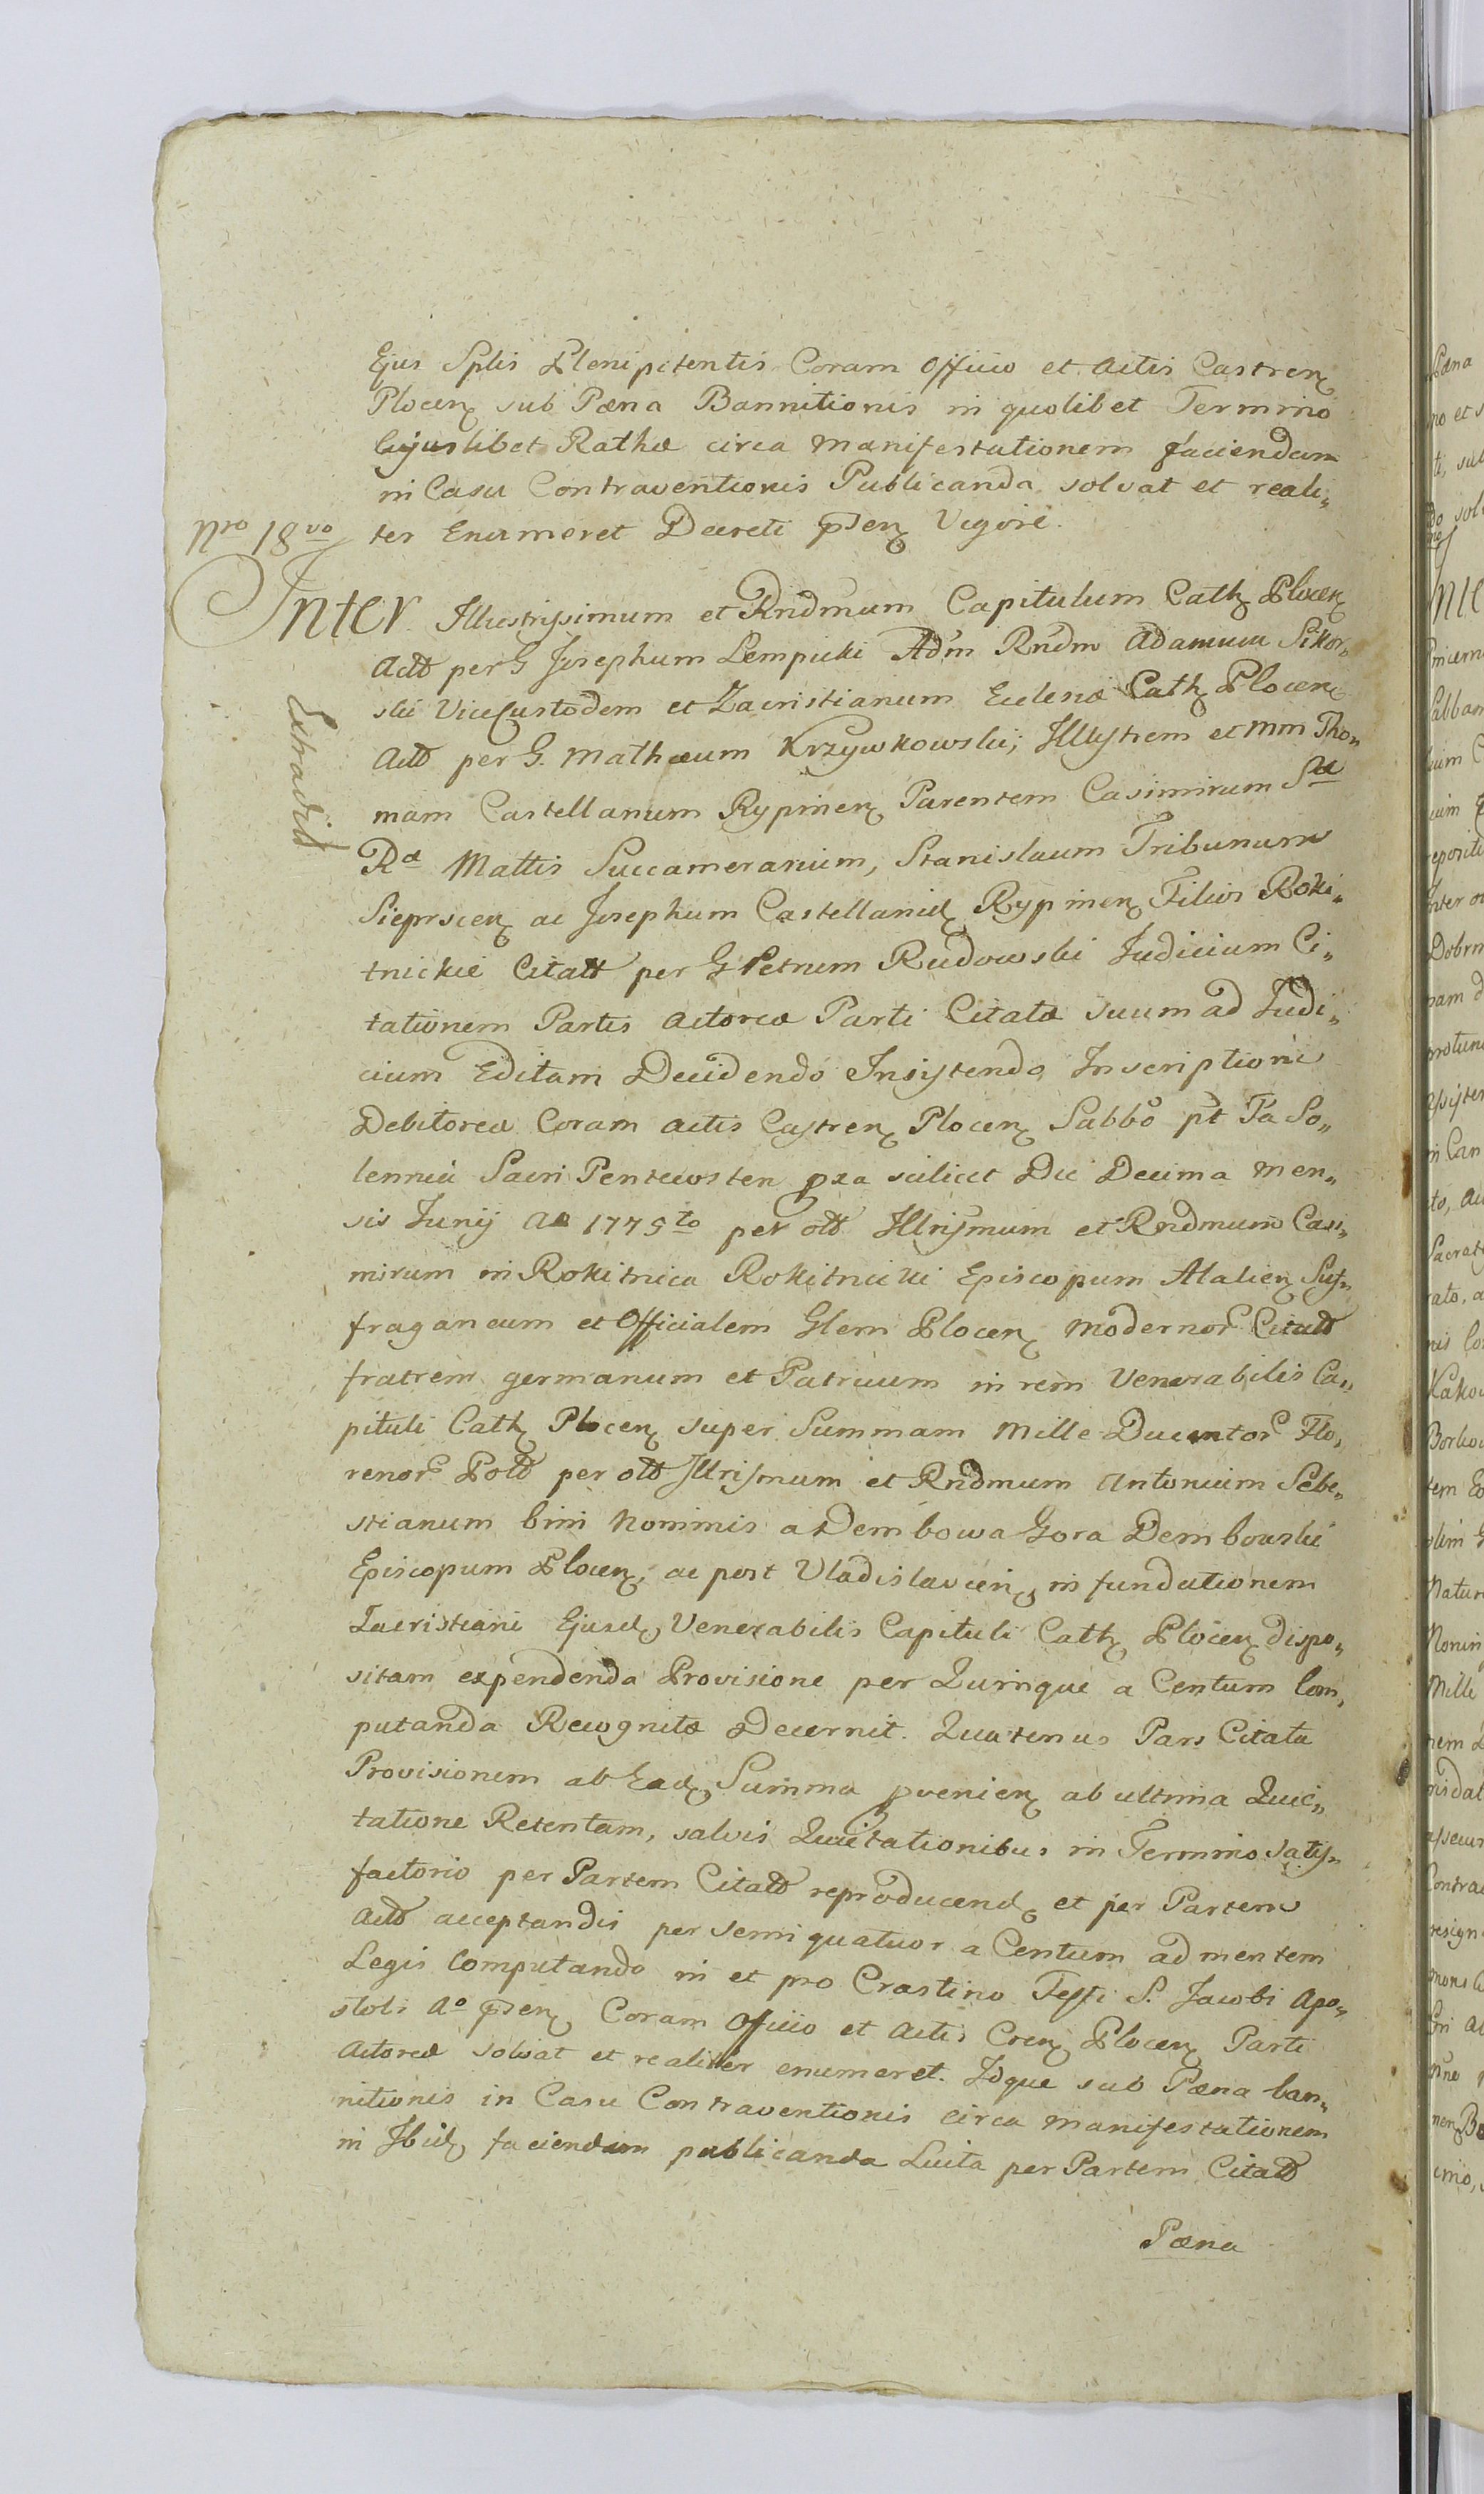 Ejus Splis Plenipotentis Coram Officio et Actis Castren
Plocen sub Pæna Bannitionis in quolibet Termino
Cujuslibet Rathæ circa Manifestationem faciendam
in Casu Contraventionis Publicanda solvat et reali„
Nro 18vo ter Enumeret Decreti psen Vigore.
Inter Illustrissimum et Rndmum Capitulum Cath Plocen
Actt per G Josephum Lempicki Adm Rndm Adamum Sikor„
ski ViceCustodem et Zacristianum Ecclenæ Cath Plocen
Actt per G. Mathæum Krzywkowski; Illustrem et Mm Tho„
mam Castellanum Rypinen Parentem Casimirum Sæ
Extradit
Ræ Mattis Succamerarium, Stanislaum Tribunum
Sieprscen ac Josephum Castellanid Rypinen Filios Roki„
tnickie Citatt per G Petrum Rudowski Judicium Ci„
tationem Partis Actoreæ Parti Citatæ suum ad Judi„
cium Editam Decidendo Insistendo Inscriptioni
Debitoreæ Coram Actis Castren Plocen Sabbo pt Fa So„
lennia Sacri Pentecosten pxa scilicet Die Decima Men„
sis Junij Ao 1775to per ott Illrismum et Rndmum Casi„
mirum in Rokitnica Rokitnicki Episcopum Atalien Suf„
fraganeum et Officialem Glem Plocen Modernor Citatt
fratrem germanum et Patruum in rem Venerabilis Ca„
pituli Cath Plocen super Summam Mille Ducentor Flo„
renor Poltt per ott Illrismum et Rndmum Antonium Sebe„
stianum bini Nominis a Dembowa Gora Dembowski
Episcopum Plocen, ac post Vladislavien, in fundationem
Zacristiani Ejusd, Venerabilis Capituli Cath Plocen dispo„
sitam expendenda Provisione per Quinque a Centum Com„
putanda Recognitæ Decernit. Quatenus Pars Citata
Provisionem ab Ead, Summa pvenien ab ultima Quie„
tatione Retentam, salvis Quietationibus in Termino Satis„
factorio per Partem Citatt reproducend et per Partem
Actt acceptandis per Semi quatuor a Centum ad mentem
Legis Computando in et pro Crastino Festi S. Jacobi Apo„
stoli Ao psen Coram Officio et Actis Cren Plocen Parti
Actoreæ solvat et realiter enumeret. Idque sub Pæna ban„
nitionis in Casu Contraventionis circa Manifestationem
in Ibid, faciendam publicanda Luita per Partem Citatt
Pæna